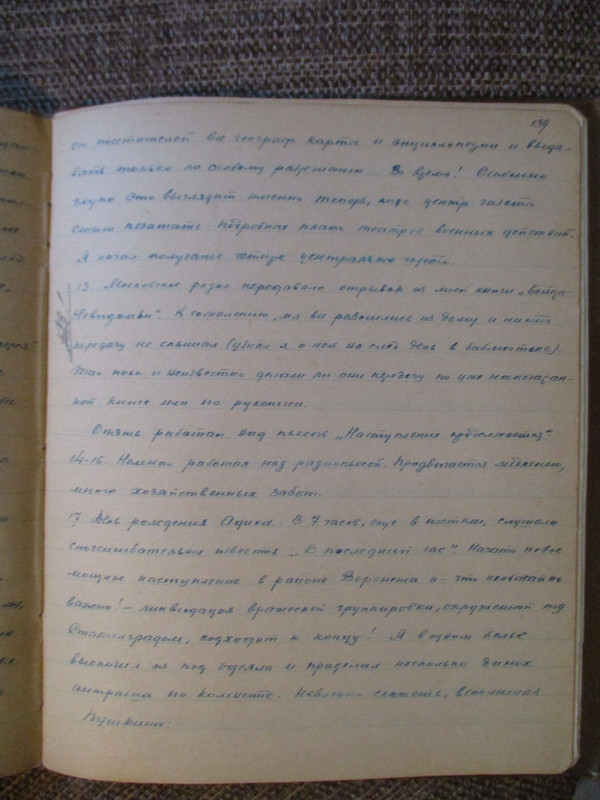 139
от посетителей все географ карты и энциклопедии и выда-
вать только по особому разрешению. Во время! Особенно
глупо это выглядит именно теперь, когда центр. газеты
стали печатать подробные планы театров военных действий.
Я начал получать четыре центральных газеты.
13. Московское радио передавало отрывок из моей книги „Бойцы-
Невидимки". К сожалению, мы все разошлись из дому и никто
передачу не слышал (узнал я о ней на след. день в библиотеке).
Так пока и неизвестно делали ли они передачу по уже напечатан-
ной книге или по рукописи.
Опять работаю над пьесой „Наступление продолжается"
14-16. Немного работал над радиопьесой. Продвигается медленно,
много хозяйственных забот.
17 День рождения Адика. В 7 часов, еще в постели, слушали
сногсшибательное известье „В последний час". Начато новое
мощное наступление в районе Воронежа и - что необычайно
важно! - ликвидация вражеской группировки, окруженной под
Сталинградом, подходит к концу! Я в одном белье
выскочил из под одеяла и проделал несколько диких
антраша по комнате. Невольно скажешь, вспоминая
Пушкина: